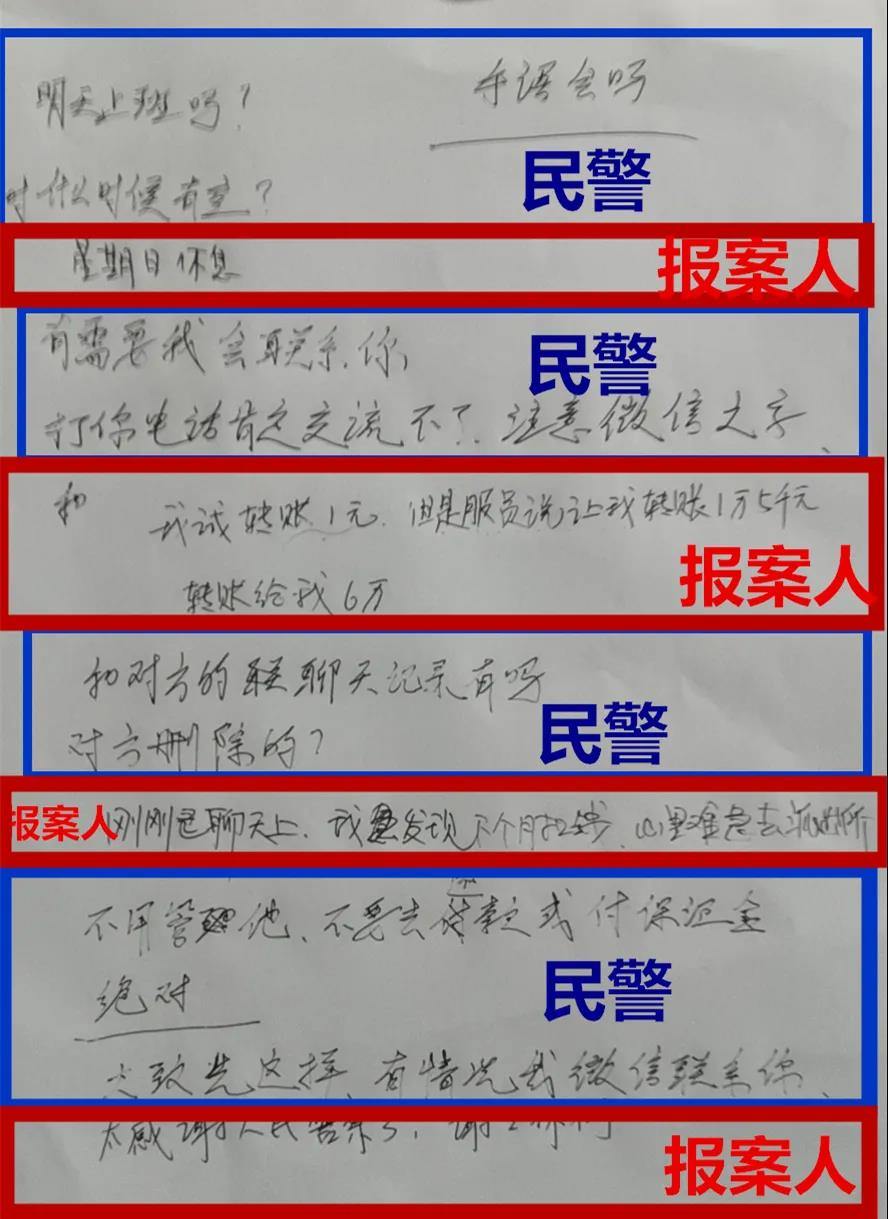 手语会吗
明天上班吗？
时什么时候有空？
民警
星期日休息
报案人
有需要我会联系你，
民警
打你电话肯定交流不了、注意微信文字、
和
我试转账1元，但是服员说让我转账1万5千元
转账给我6万
报案人
和对方的联聊天记录有吗
对方删除的？
民警
报案人
刚刚是聊天上，我发现下个月扣钱，心里难 去派出所
不用管理他、不要去贷款或付保证金
还
绝对
民警
大致先这样、有情况我微信联系你、
太感谢人民警察了，谢谢你们
报案人